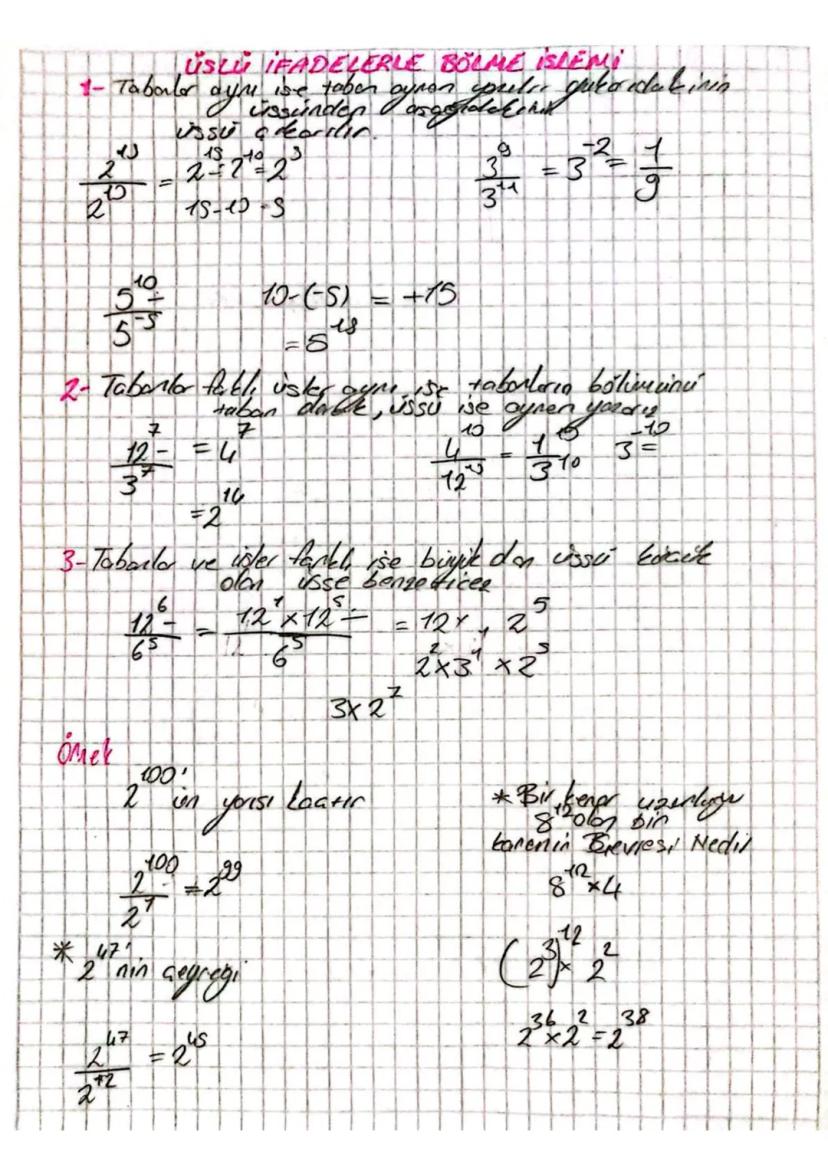 ÜSLÜ İFADELERLE BÖLME İŞLEMİ
1- Tabanlar aynı ise taban aynen yazılır yukarıdakinin
üssünden aşağıdakinin
üssü çıkarılır.
2^15 / 2^10 = 2^15 ÷ 2^10 = 2^5
15-10=5
3^9 / 3^11 = 3^-2 = 1/9
5^10 ÷ / 5^-5
10-(-5) = +15
= 5^15
2- Tabanlar farklı üsler aynı ise tabanların bölümünü
taban olarak, üssü ise aynen yazarız
12^7 - / 3^7 = 4^7
= 2^14
4^10 / 12^10 = 1^10 / 3^10 3^-10 =
3- Tabanlar ve üsler farklı ise büyük olan üssü küçük
olan üsse benzetilir
12^6 - / 6^5 = 12^1 x 12^5 ÷ / 6^5 = 12 x 2^5
2^2 x 3^1 x 2^5
3 x 2^7
Örnek
2^100'ün yarısı kaçtır
2^100 / 2^1 = 2^99
* 2^47'nin çeyreği
2^47 / 2^+2 = 2^45
* Bir kenar uzunluğu
8^12 olan bir
karenin Çevresi Nedir
8^12 x 4
(2^3)^12 x 2^2
2^36 x 2^2 = 2^38